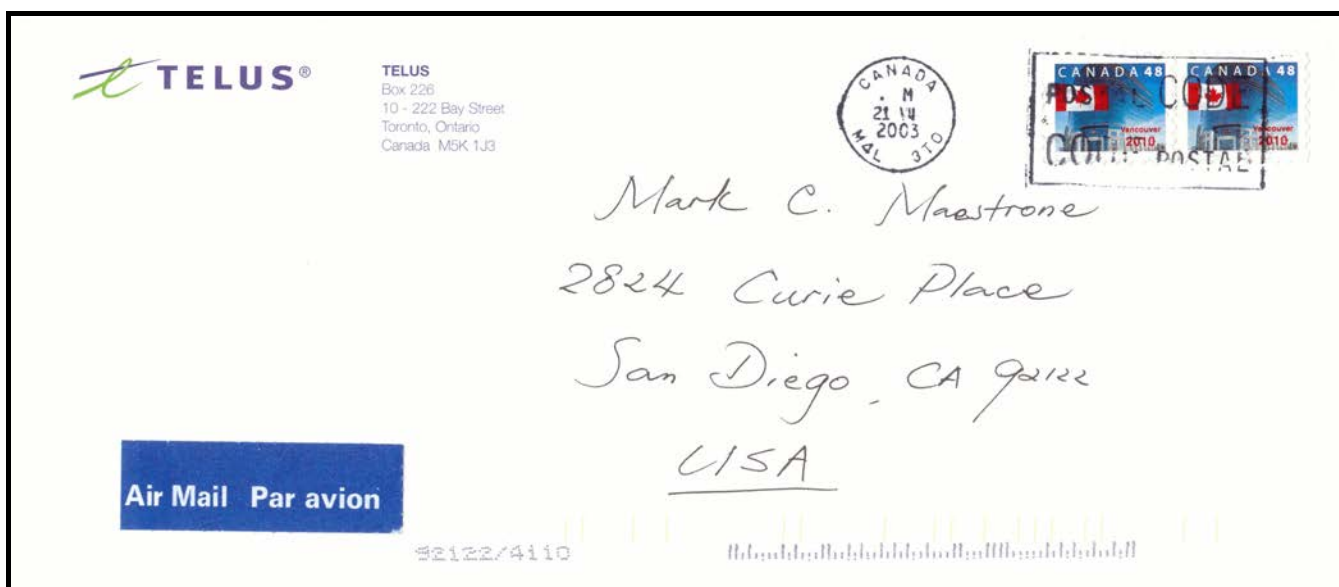 TELUS®
TELUS
Box 226
10 - 222 Bay Street
Toronto, Ontario
Canada M5K 1J3
CANADA
M
21
2003
M4L 3T0
CANADA 48
CANADA 48
POSTAL CODE
Vancouver
2010
Vancouver
2010
CODE POSTAL
Mark C. Maestrone
2824 Curie Place
San Diego, CA 92122
USA
Air Mail Par avion
92122/4110